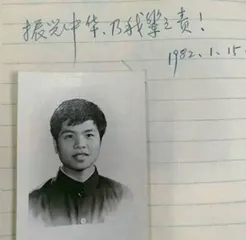 振兴中华,乃我辈之责!
1982.1.15.